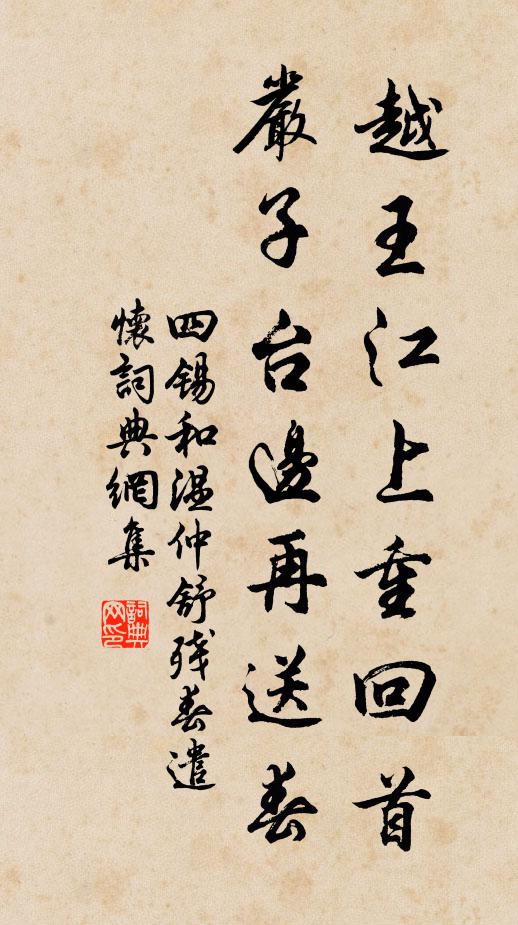 越王江上重回首
嚴子台邊再送春
四錫和温仲舒殘春遣
懷詞典網集
詞典网印